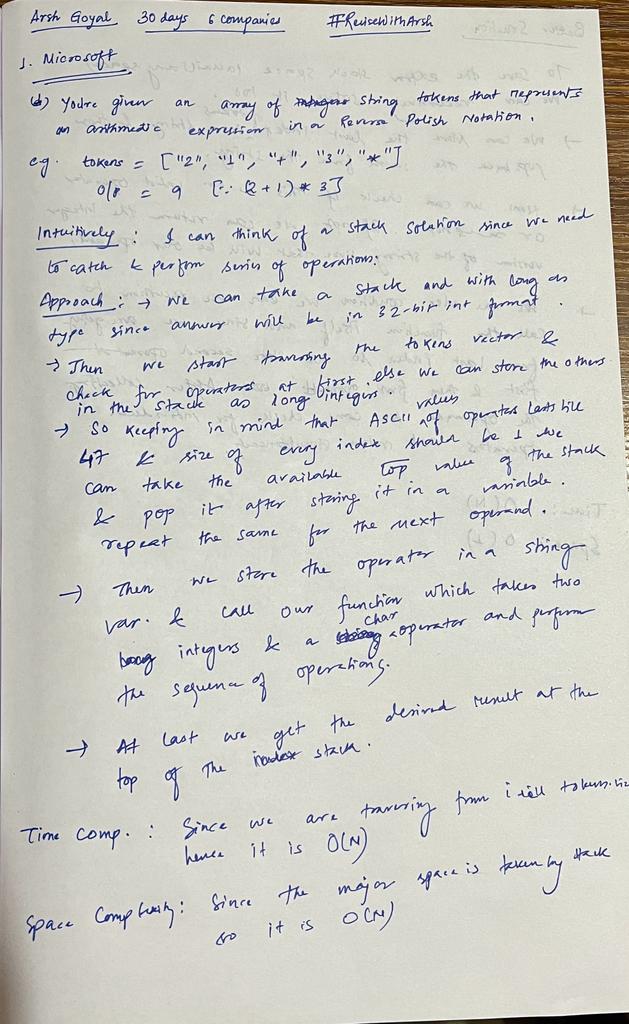 Arsh Goyal 30 days 6 companies #ReviseWithArsh
1. Microsoft
(d) You're given an array of string tokens that represents
an arithmetic expression in a Reverse Polish Notation.
eg. tokens = ["2", "1", "+", "3", "*"]
O/P = 9 [∵ (2+1) * 3]
Intuitively : I can think of a stack solution since we need
to catch & perform series of operations.
Approach : → We can take a stack and with long as
type since answer will be in 32-bit int format.
→ Then we start traversing the tokens vector &
check for operators at first, else we can store the others
in the stack as long integers.
→ So keeping in mind that ASCII values of operator lasts till
47 & size of every index should be 1 we
can take the available top value of the stack
& pop it after storing it in a variable.
repeat the same for the next operand.
→ Then we store the operator in a string
var. & call our function which takes two
integers & a char operator and perform
the sequence of operations.
→ At last we get the desired result at the
top of the stack.
Time Comp. : Since we are traversing from i till tokens.
hence it is O(N)
Space Complexity: Since the major space is taken by stack
so it is O(N)